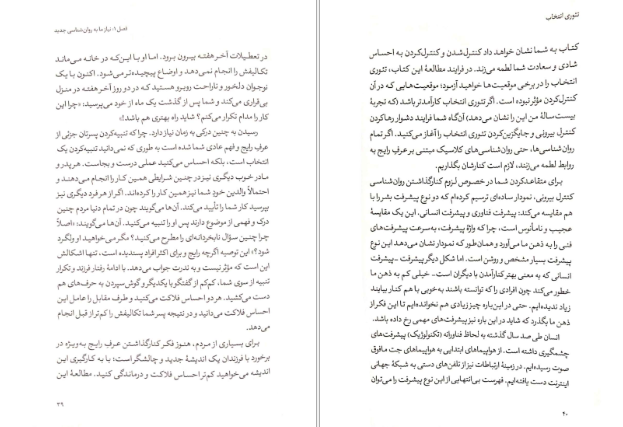 فصل ۱: نیاز ما به روان‌شناسی جدید
در تعطیلات آخر هفته بیرون برود. اما او با این‌که در خانه می‌ماند
تکالیفش را انجام نمی‌دهد و اوضاع پیچیده‌تر می‌شود. اکنون با یک
نوجوان دلخور و ناراحت روبرو هستید که در دو روز آخر هفته در منزل
بی‌قراری می‌کند و شما پس از گذشت یک ماه از خود می‌پرسید: «چرا این
کار را مدام تکرار می‌کنم؟ شاید راه بهتری هم باشد!»
رسیدن به چنین درکی به زمان نیاز دارد. چرا که تنبیه‌کردن پسرتان جزئی از
عرف رایج و فهم عادی شما شده است به طوری که نمی‌دانید تنبیه‌کردن یک
انتخاب است، بلکه احساس می‌کنید عملی درست و بجاست. هر پدر و
مادر خوب دیگری نیز در چنین شرایطی همین کار را انجام می‌دهند و
احتمالاً والدین خود شما نیز همین کار را کرده‌اند. اگر از هر فرد دیگری نیز
بپرسید کار شما را تأیید می‌کند. آن‌ها می‌گویند چون در تمام دنیا مردم چنین
درک و فهمی از موضوع دارند پس او را تنبیه می‌کنید. آن‌ها می‌گویند: «اصلاً
چرا چنین سؤال نابخردانه‌ای را مطرح می‌کنید؟ مگر می‌خواهید او ولگرد
شود؟» این توصیه اگرچه رایج و برای اکثر افراد پسندیده است، تنها اشکالش
این است که مؤثر نیست و به ندرت جواب می‌دهد. با ادامهٔ رفتار فرزند و تکرار
تنبیه از سوی شما، کم‌کم از گفتگو با یکدیگر و گوش سپردن به حرف‌های هم
دست می‌کشید. هر دو احساس فلاکت می‌کنید و طرف مقابل را عامل این
احساس فلاکت می‌دانید و در نتیجه پسر شما تکالیفش را کم‌تر از قبل انجام
می‌دهد.
برای بسیاری از مردم، هنوز فکر کنارگذاشتن عرف رایج به‌ویژه در
برخورد با فرزندان یک اندیشهٔ جدید و چالشگر است؛ با به کارگیری این
اندیشه می‌خواهید کم‌تر احساس فلاکت و درماندگی کنید. مطالعهٔ این
۳۹
تئوری انتخاب
کتاب به شما نشان خواهد داد کنترل‌شدن و کنترل‌کردن به احساس
شادی و سعادت شما لطمه می‌زند. در فرایند مطالعهٔ این کتاب، تئوری
انتخاب را در برخی موقعیت‌ها خواهید آزمود؛ موقعیت‌هایی که در آن
کنترل‌کردن مؤثر نبوده است. اگر تئوری انتخاب کارآمدتر باشد (که تجربهٔ
بیست سالهٔ من این را نشان می‌دهد) آن‌گاه شما فرایند دشوار رها کردن
کنترل بیرونی و جایگزین‌کردن تئوری انتخاب را آغاز می‌کنید. اگر تمام
روان‌شناسی‌ها، حتی روان‌شناسی‌های کلاسیک مبتنی بر عرف رایج به
روابط لطمه می‌زنند، لازم است کنارشان بگذاریم.
برای متقاعدکردن شما در خصوص لزوم کنارگذاشتن روان‌شناسی
کنترل بیرونی، نمودار ساده‌ای ترسیم کرده‌ام که دو نوع پیشرفت بشر را با
هم مقایسه می‌کند: پیشرفت فناوری و پیشرفت انسانی. این یک مقایسهٔ
عجیب و نامأنوس است، چرا که واژهٔ پیشرفت، به‌سرعت پیشرفت‌های
فنی را به ذهن ما می‌آورد و همان‌طور که نمودار نشان می‌دهد این نوع
پیشرفت بسیار مشخص و روشن است. اما شکل دیگر پیشرفت - پیشرفت
انسانی که به معنی بهتر کنارآمدن با دیگران است - خیلی کم به ذهن ما
خطور می‌کند چون افرادی را که توانسته باشند به‌خوبی با هم کنار بیایند
زیاد ندیده‌ایم. حتی در این‌باره چیز زیادی هم نخوانده‌ایم تا این فکر از
ذهن ما بگذرد که شاید در این باره نیز پیشرفت‌های مهمی رخ داده باشد.
انسان طی صد سال گذشته به لحاظ فناورانه (تکنولوژیک) پیشرفت‌های
چشمگیری داشته است. از هواپیماهای ابتدایی به هواپیماهای جت مافوق
صوت رسیده‌ایم. در زمینهٔ ارتباطات نیز از تلفن‌های دستی به شبکهٔ جهانی
اینترنت دست یافته‌ایم. فهرست بی‌انتهایی از این نوع پیشرفت را می‌توان
۴۰